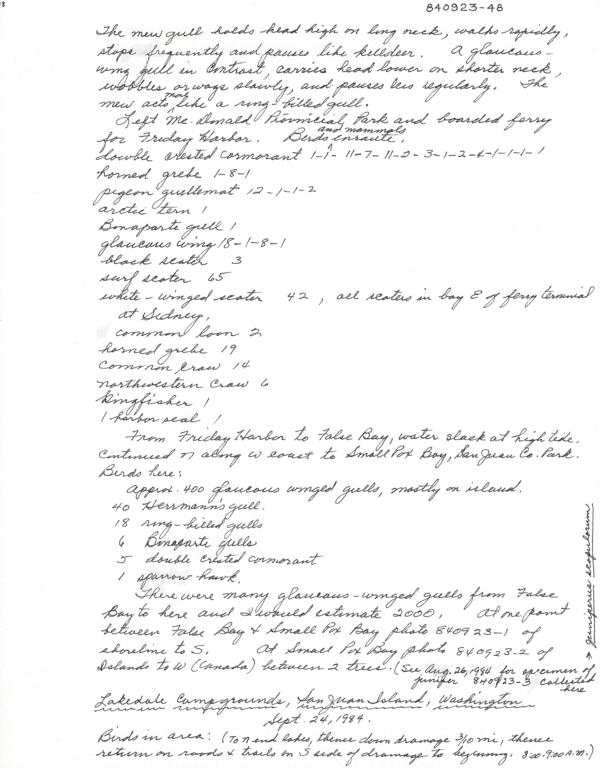 840923-48
The mew gull holds head high on long neck, walks rapidly,
stops frequently and pauses like killdeer. A glaucous-
wing gull in contrast, carries head lower on shorter neck,
wobbles or wags slowly, and pauses less regularly. The
mew acts more like a ring-billed gull.
Left Mc.Donald Provincial Park and boarded ferry
for Friday Harbor. Birds and mammals enroute,
double crested cormorant 1-1-11-7-11-2-3-1-2-4-1-1-1-1
horned grebe 1-8-1
pigeon guillemat 12-1-1-2
arctic tern 1
Bonaparte gull 1
glaucous wing 18-1-8-1
black scoter 3
surf scoter 65
white-winged scoter 42, all scoters in bay E of ferry terminal
at Sidney,
common loon 2
horned grebe 19
common craw 14
northwestern craw 6
kingfisher 1
1 harbor seal 1
From Friday Harbor to False Bay, water slack at high tide.
Continued n along w coast to Small Pox Bay, San Juan Co. Park.
Birds here:
Approx. 400 glaucous winged gulls, mostly on island.
40 Herrmann's gull.
18 ring-billed gulls
6 Bonaparte gulls
5 double crested cormorant
1 sparrow hawk.
There were many glaucous-winged gulls from False
Bay to here and I would estimate 2000. At one point
between False Bay & Small Pox Bay photo 840923-1 of
shoreline to S. At Small Pox Bay photo 840923-2 of
Islands to W (Canada) between 2 trees. (See Aug. 26, 1984 for specimen of
juniper 840923-3 collected
here
→ Juniperus scopulorum
Lakedale Campgrounds, San Juan Island, Washington
Sept. 24, 1984.
Birds in area: (To n end lakes, thence down drainage 3/10 mi, thence
return on roads & trails on S side of drainage to beginning. 8:00-9:00 A.M.)